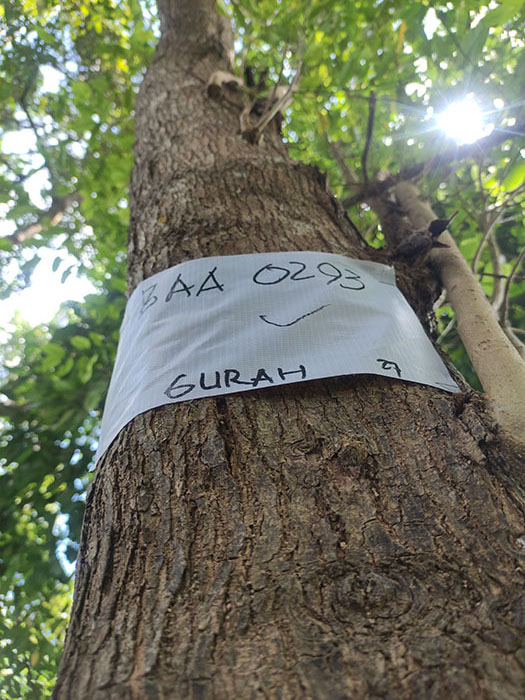 BAA 0293
GURAH 27